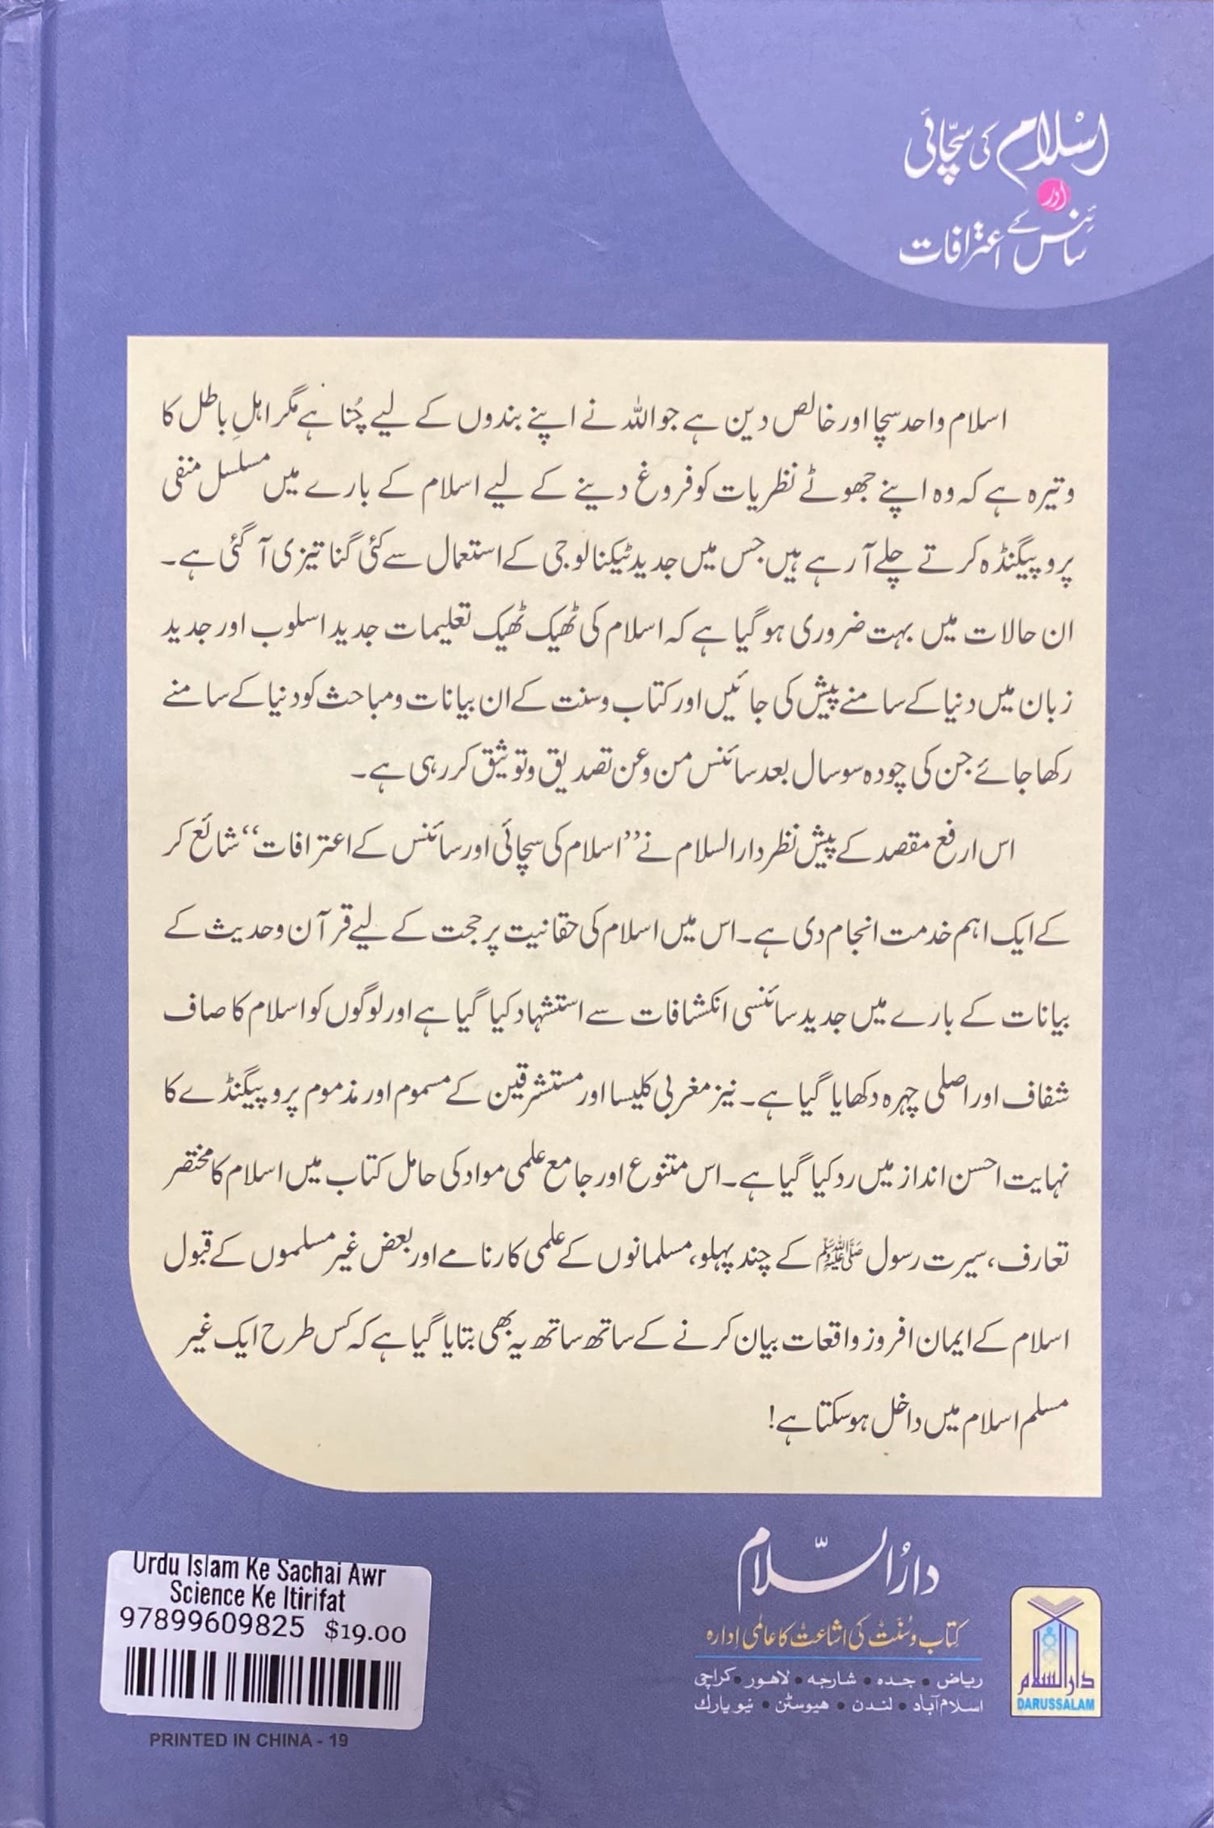 اسلام کی سچّائی
اور
سائنس کے اعترافات
اسلام واحد سچا اور خالص دین ہے جو اللہ نے اپنے بندوں کے لیے چُنا ہے مگر اہلِ باطل کا
وتیرہ ہے کہ وہ اپنے جھوٹے نظریات کو فروغ دینے کے لیے اسلام کے بارے میں مسلسل منفی
پروپیگنڈہ کرتے چلے آ رہے ہیں جس میں جدید ٹیکنالوجی کے استعمال سے کئی گنا تیزی آ گئی ہے۔
ان حالات میں بہت ضروری ہو گیا ہے کہ اسلام کی ٹھیک ٹھیک تعلیمات جدید اسلوب اور جدید
زبان میں دنیا کے سامنے پیش کی جائیں اور کتاب و سنت کے ان بیانات و مباحث کو دنیا کے سامنے
رکھا جائے جن کی چودہ سو سال بعد سائنس من و عن تصدیق و توثیق کر رہی ہے۔
اس ارفع مقصد کے پیش نظر دارالسلام نے ”اسلام کی سچائی اور سائنس کے اعترافات“ شائع کر
کے ایک اہم خدمت انجام دی ہے۔ اس میں اسلام کی حقانیت پر حجت کے لیے قرآن و حدیث کے
بیانات کے بارے میں جدید سائنسی انکشافات سے استشہاد کیا گیا ہے اور لوگوں کو اسلام کا صاف
شفاف اور اصلی چہرہ دکھایا گیا ہے۔ نیز مغربی کلیسا اور مستشرقین کے مسموم اور مذموم پروپیگنڈے کا
نہایت احسن انداز میں رد کیا گیا ہے۔ اس متنوع اور جامع علمی مواد کی حامل کتاب میں اسلام کا مختصر
تعارف، سیرت رسول ﷺ کے چند پہلو، مسلمانوں کے علمی کارنامے اور بعض غیر مسلموں کے قبول
اسلام کے ایمان افروز واقعات بیان کرنے کے ساتھ ساتھ یہ بھی بتایا گیا ہے کہ کس طرح ایک غیر
مسلم اسلام میں داخل ہو سکتا ہے!
دارُالسّلام
کتاب و سُنّت کی اشاعت کا عالمی ادارہ
ریاض • جدہ • شارجہ • لاہور • کراچی
اسلام آباد • لندن • ہیوسٹن • نیویارک
دارالسلام
DARUSSALAM
Urdu Islam Ke Sachai Awr
Science Ke Itirifat
97899609825 $19.00
PRINTED IN CHINA - 19